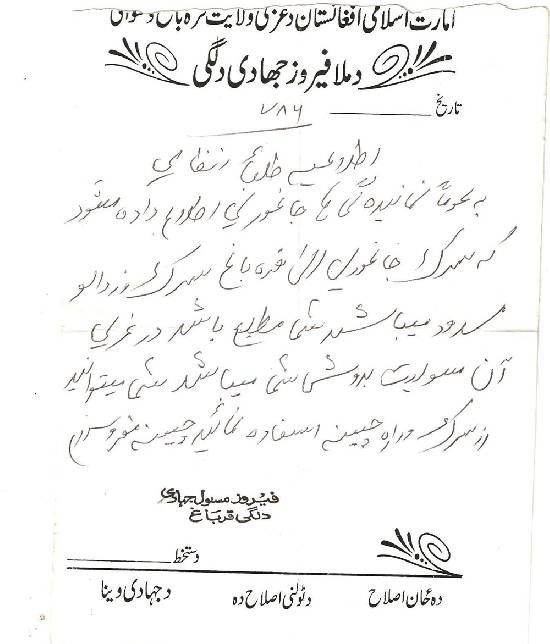 امارت اسلامی افغانستان د غزنی ولایت قره باغ
د ملا فیروز جهادی دلگی
تاریخ
۷۸۶
اطلاعیه طلبای نظامی
به عموماً نماینده گی ها جاغوری اطلاع داده میشود
که سرک جاغوری الی قره باغ سرک زردالو
مسدود میباشد شما مطلع باشد در غیر
آن مسولیت بدوش شما میباشد شما میتوانید
از سرک و راه چینه استفاده نمائید چینه
فیروز مسئول جهادی
دلگی قرباغ
دستخط
ده ځان اصلاح
د ټولنی اصلاح ده
د جهادی وینا